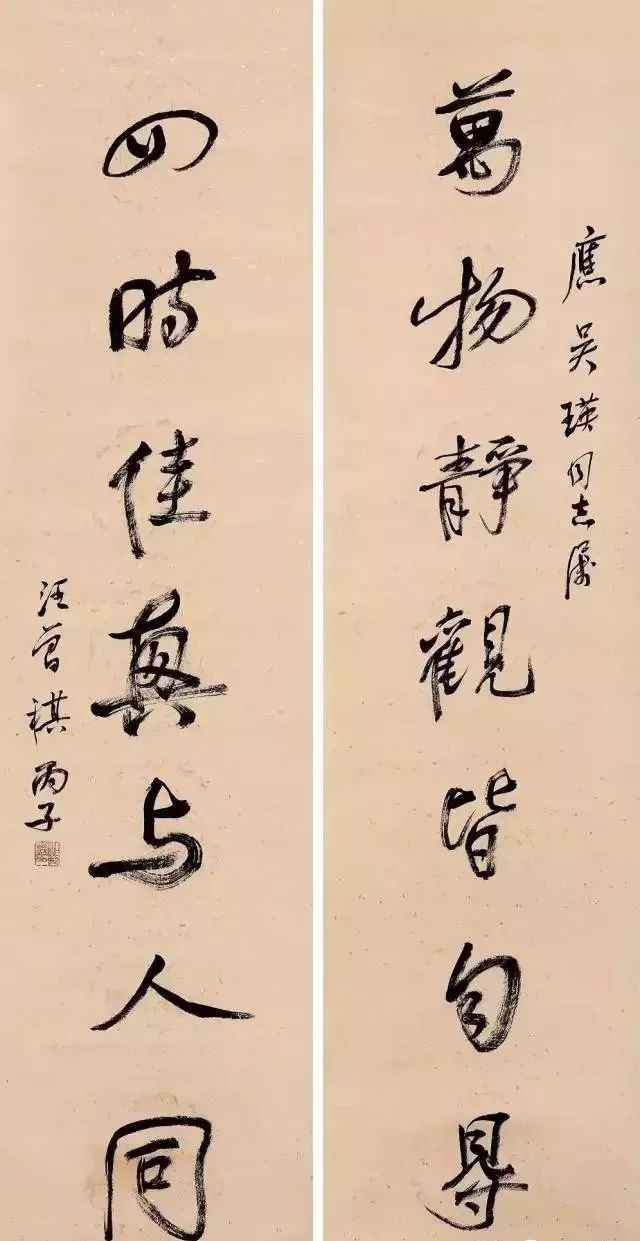 應吴瑛同志属
萬物靜觀皆自㝵
四時佳興与人同
汪曾祺丙子